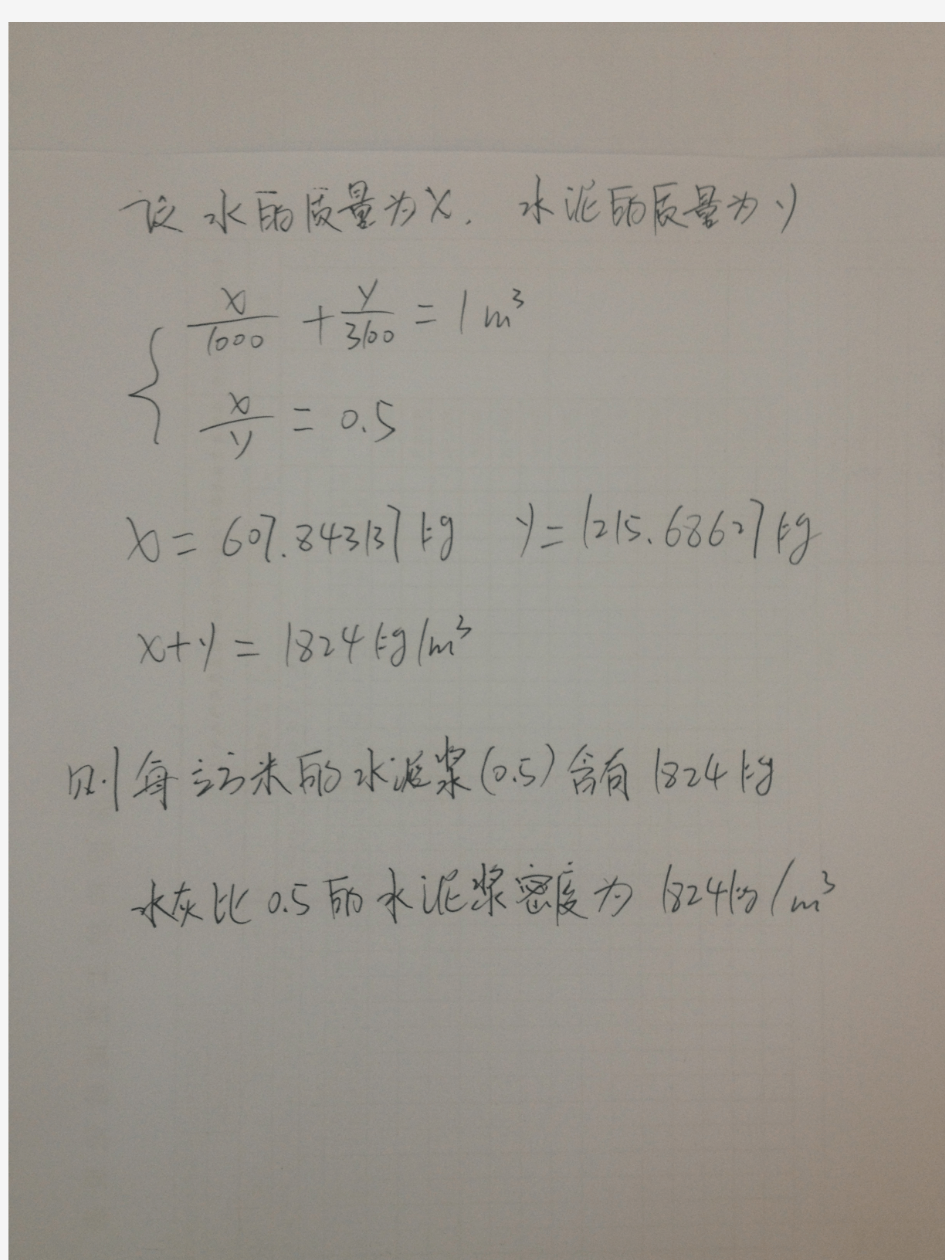 设水的质量为X. 水泥的质量为y
{ x/1000 + y/3100 = 1 m³
x/y = 0.5
x = 607.843137 kg  y = 1215.68627 kg
x+y = 1824 kg/m³
则每立方米的水泥浆(0.5)含有1824 kg
水灰比0.5的水泥浆密度为1824kg/m³